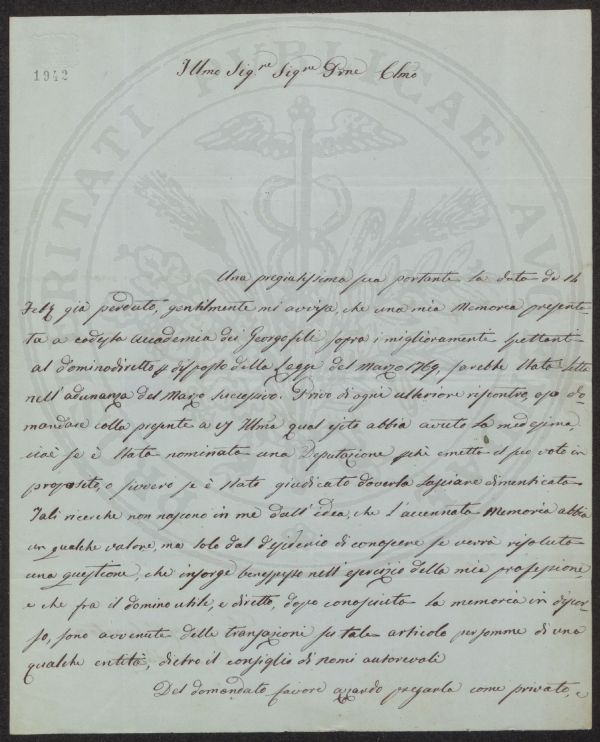 1942
Illmo Sig.re Sig.re Prne Clmo
Una pregiatissima sua portante la data de 14
Febb. già perduto, gentilmente mi avvisa, che una mia Memoria presenta-
ta a codesta Accademia dei Georgofili sopra i miglioramenti spettanti
al dominodiretto p disposto della Legge del Marzo 1769, sarebbe stata letta
nell'adunanza del Marzo successivo. Privo di ogni ulteriore riscontro, oso do-
mandare colla presente a VS Illma qual esito abbia avuto la medesima
cioè se è stata nominata una Deputazione pchè emetta il suo voto in
proposito, o sivvero se è stato giudicato doverla lasciare dimenticata
Tali ricerche non nascono in me dall'idea, che l'accennata Memoria abbia
un qualche valore, ma solo dal desiderio di conoscere se verrà risoluta
una questione, che insorge benespesso nell'esercizio della mia professione,
e che fra il domino utile, e diretto, dopo conosciuta la memoria in discor-
so, sono avvenute delle transazioni su tale articolo per somme di una
qualche entità, dietro il consiglio di nomi autorevoli
Del domandato favore azzardo pregarla come privato, e
SPERITATI PUBLICAE